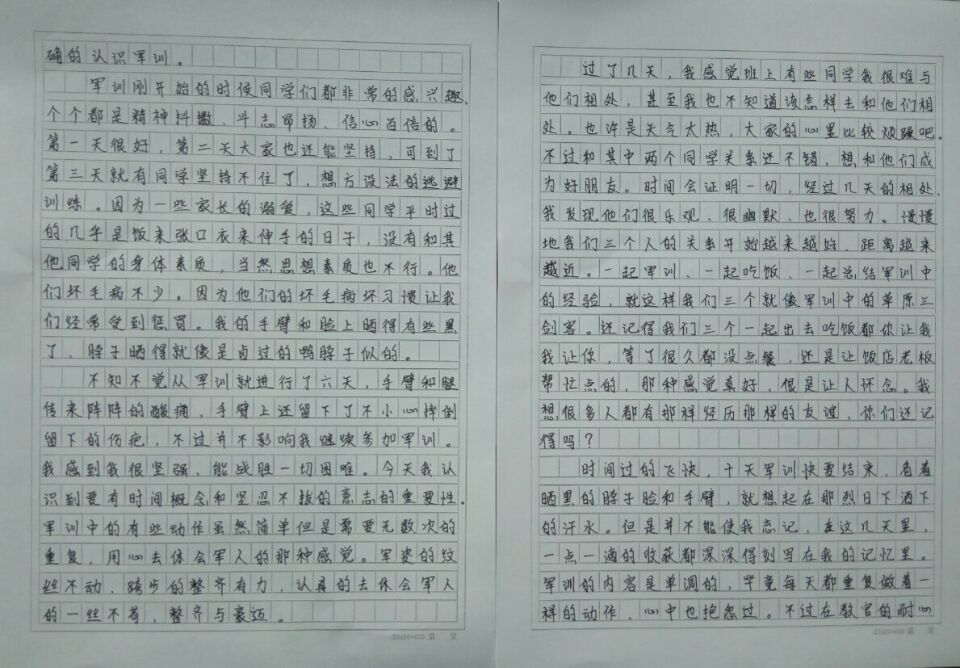 确的认识军训。
军训刚开始的时候同学们都非常的感兴趣,
个个都是精神抖擞、斗志昂扬、信心百倍的。
第一天很好,第二天大家也还能坚持,可到了
第三天就有同学坚持不住了,想方设法的逃避
训练。因为一些家长的溺爱,这些同学平时过
的几乎是饭来张口衣来伸手的日子,没有和其
他同学的身体素质,当然思想素质也不行。他
们坏毛病不少。因为他们的坏毛病坏习惯让我
们经常受到惩罚。我的手臂和脸上晒得有些黑
了,脖子晒得就像是卤过的鸭脖子似的。
不知不觉从军训就进行了六天,手臂和腿
传来阵阵的酸痛,手臂上还留下了不小心摔倒
留下的伤疤,不过并不影响我继续参加军训。
我感到我很坚强,能战胜一切困难。今天我认
识到要有时间概念和坚忍不拔的意志的重要性。
军训中的有些动作虽然简单但是需要无数次的
重复,用心去体会军人的那种感觉。军姿的纹
丝不动,踏步的整齐有力,认真的去体会军人
的一丝不苟,整齐与豪迈。
20×20=400 第 页
过了几天,我感觉班上有些同学我很难与
他们相处,甚至我也不知道该怎样去和他们相
处。也许是天气太热,大家的心里比较烦躁吧。
不过和其中两个同学关系还不错,想和他们成
为好朋友。时间会证明一切,经过几天的相处,
我发现他们很乐观、很幽默、也很努力。慢慢
地我们三个人的关系开始越来越好,距离越来
越近。一起军训、一起吃饭、一起总结军训中
的经验,就这样我们三个就像军训中的草原三
剑客。还记得我们三个一起出去吃饭都你让我
我让你,等了很久都没点餐,还是让饭店老板
帮忙点的,那种感觉真好,很是让人怀念。我
想很多人都有那样经历那样的友谊,你们还记
得吗?
时间过的飞快,十天军训快要结束,看着
晒黑的脖子脸和手臂,就想起在那烈日下洒下
的汗水。但是并不能使我忘记,在这几天里,
一点一滴的收获都深深得刻写在我的记忆里。
军训的内容是单调的,毕竟每天都重复做着一
样的动作,心中也抱怨过。不过在教官的耐心
20×20=400 第 页